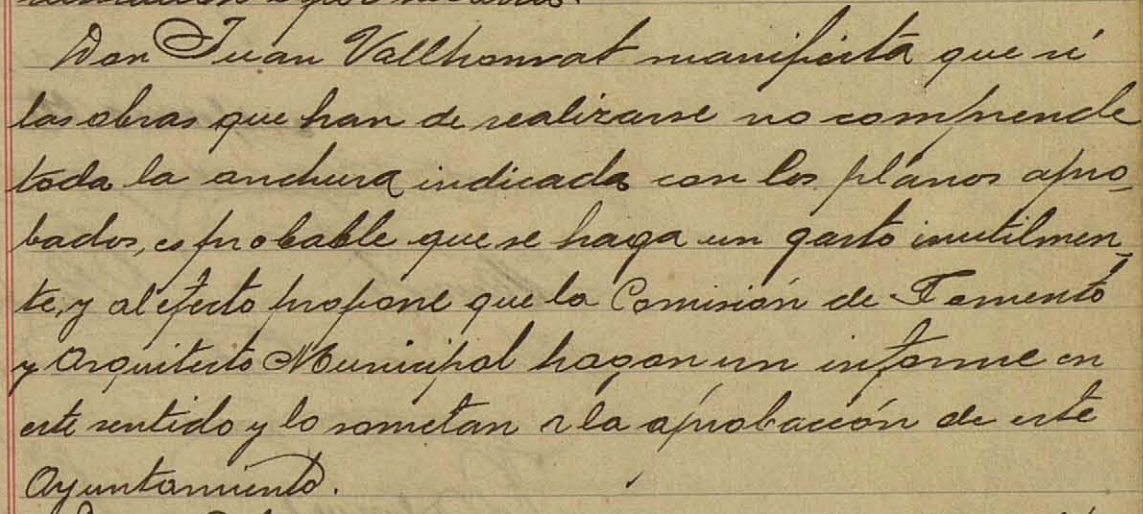 Don Juan Vallhonrat manifiesta que si
las obras que han de realizarse no comprende
toda la anchura indicada con los planos apro-
bados, es probable que se haga un gasto inutilmen-
te, y al efecto propone que la Comisión de Fomento
y Arquitecto Municipal hagan un informe en
este sentido y lo sometan a la aprobación de este
Ayuntamiento.